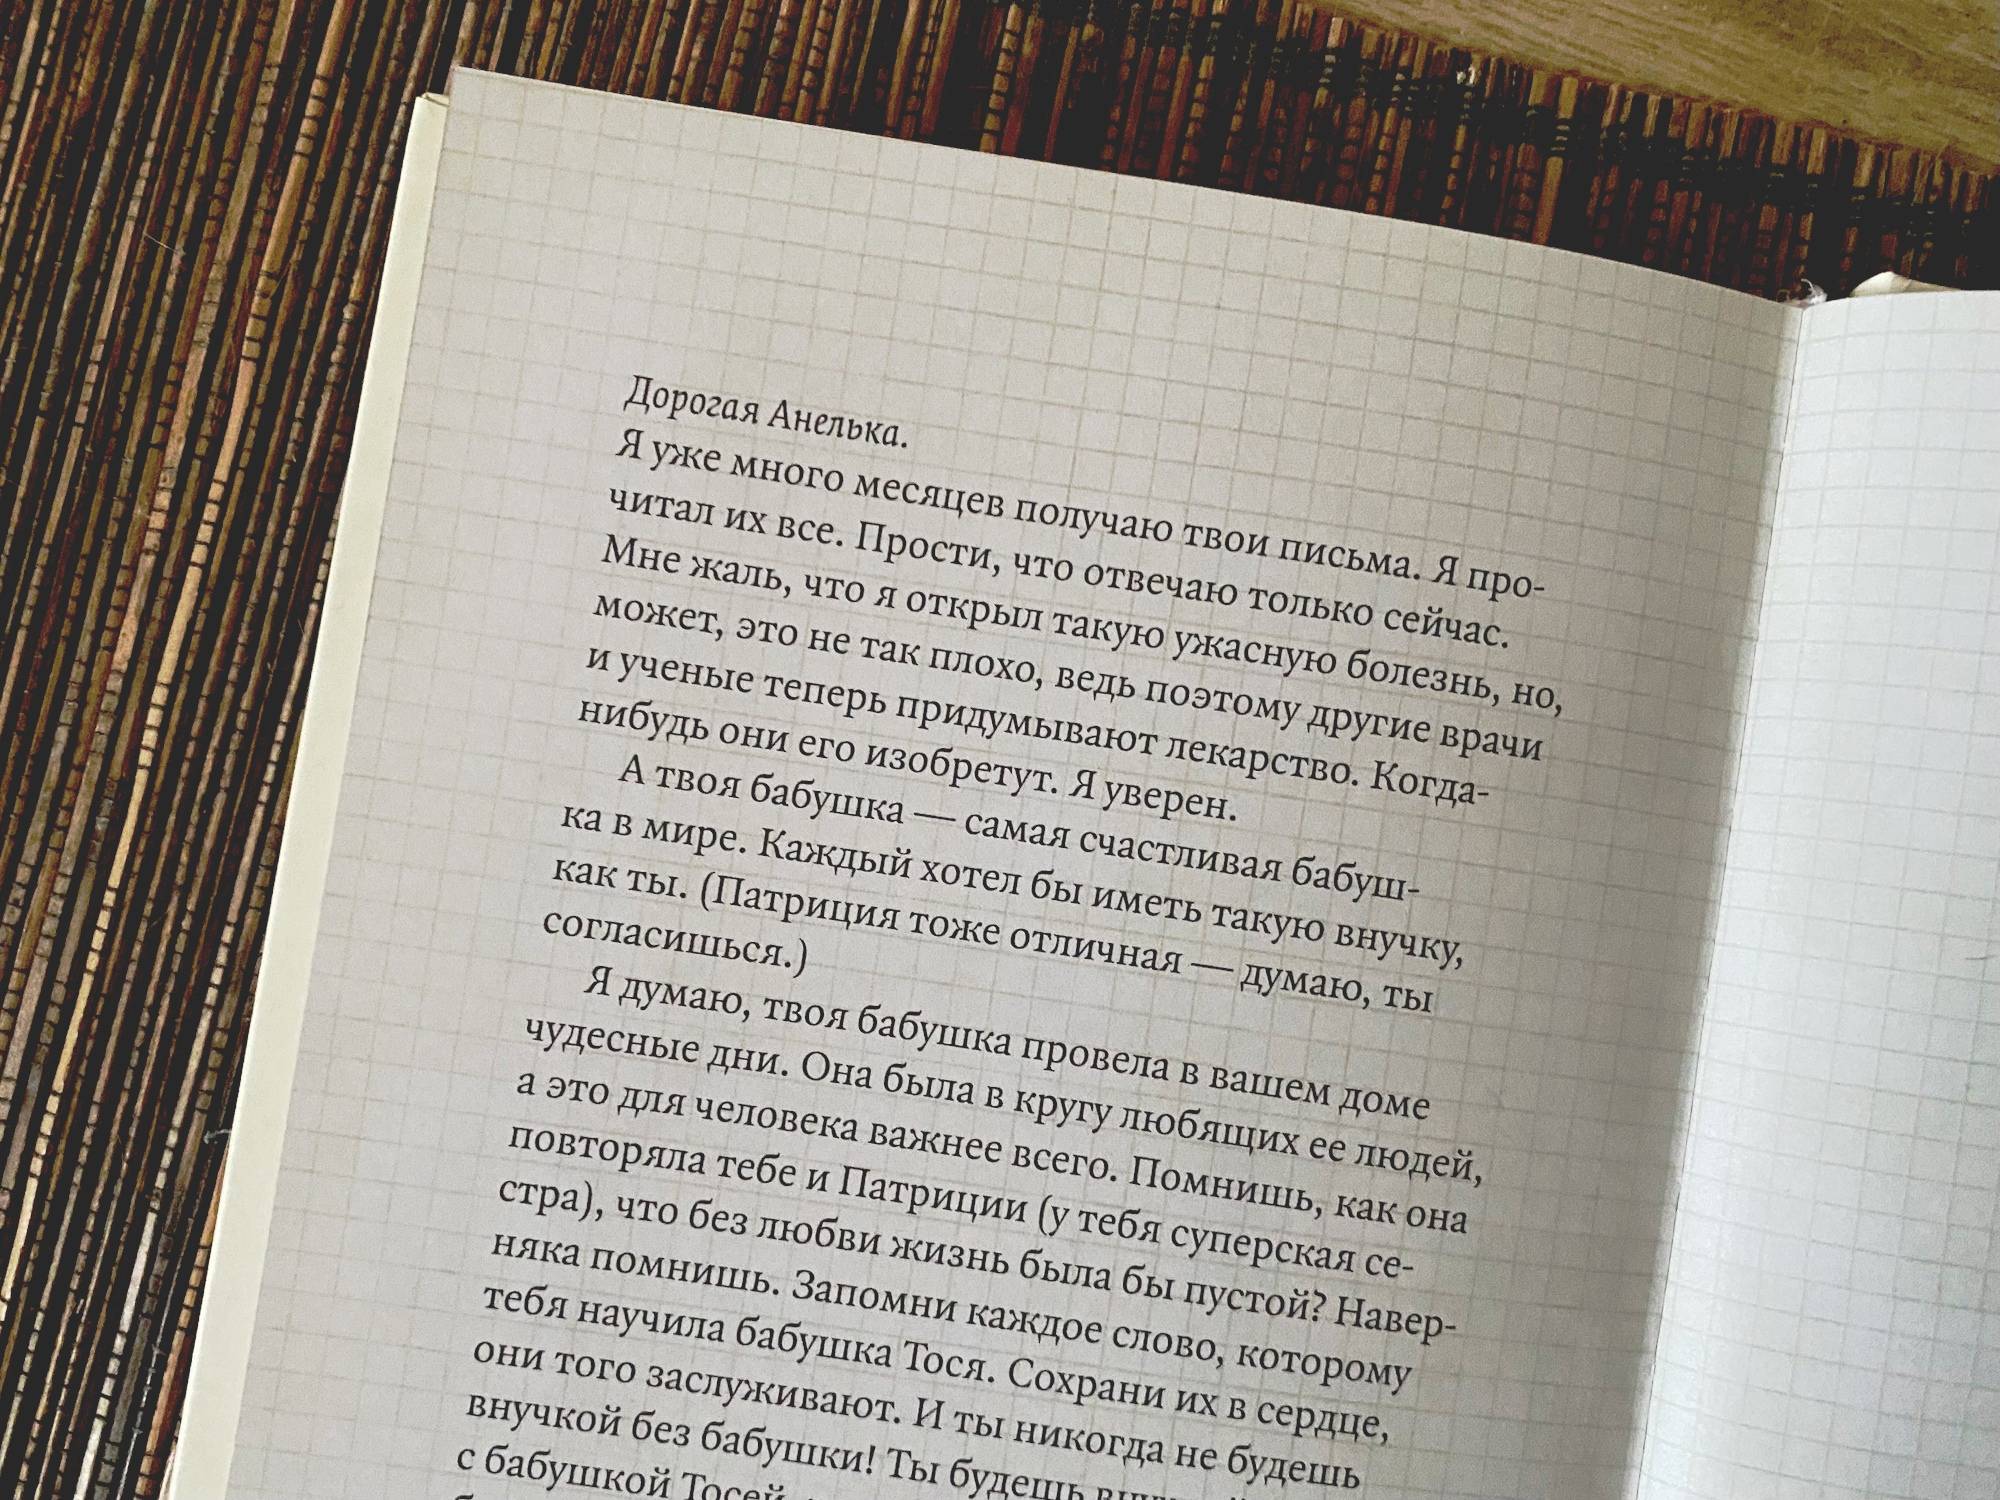 Дорогая Анелька.
Я уже много месяцев получаю твои письма. Я про-
читал их все. Прости, что отвечаю только сейчас.
Мне жаль, что я открыл такую ужасную болезнь, но,
может, это не так плохо, ведь поэтому другие врачи
и ученые теперь придумывают лекарство. Когда-
нибудь они его изобретут. Я уверен.
А твоя бабушка — самая счастливая бабуш-
ка в мире. Каждый хотел бы иметь такую внучку,
как ты. (Патриция тоже отличная — думаю, ты
согласишься.)
Я думаю, твоя бабушка провела в вашем доме
чудесные дни. Она была в кругу любящих ее людей,
а это для человека важнее всего. Помнишь, как она
повторяла тебе и Патриции (у тебя суперская се-
стра), что без любви жизнь была бы пустой? Навер-
няка помнишь. Запомни каждое слово, которому
тебя научила бабушка Тося. Сохрани их в сердце,
они того заслуживают. И ты никогда не будешь
внучкой без бабушки! Ты будешь
с бабушкой Тосей